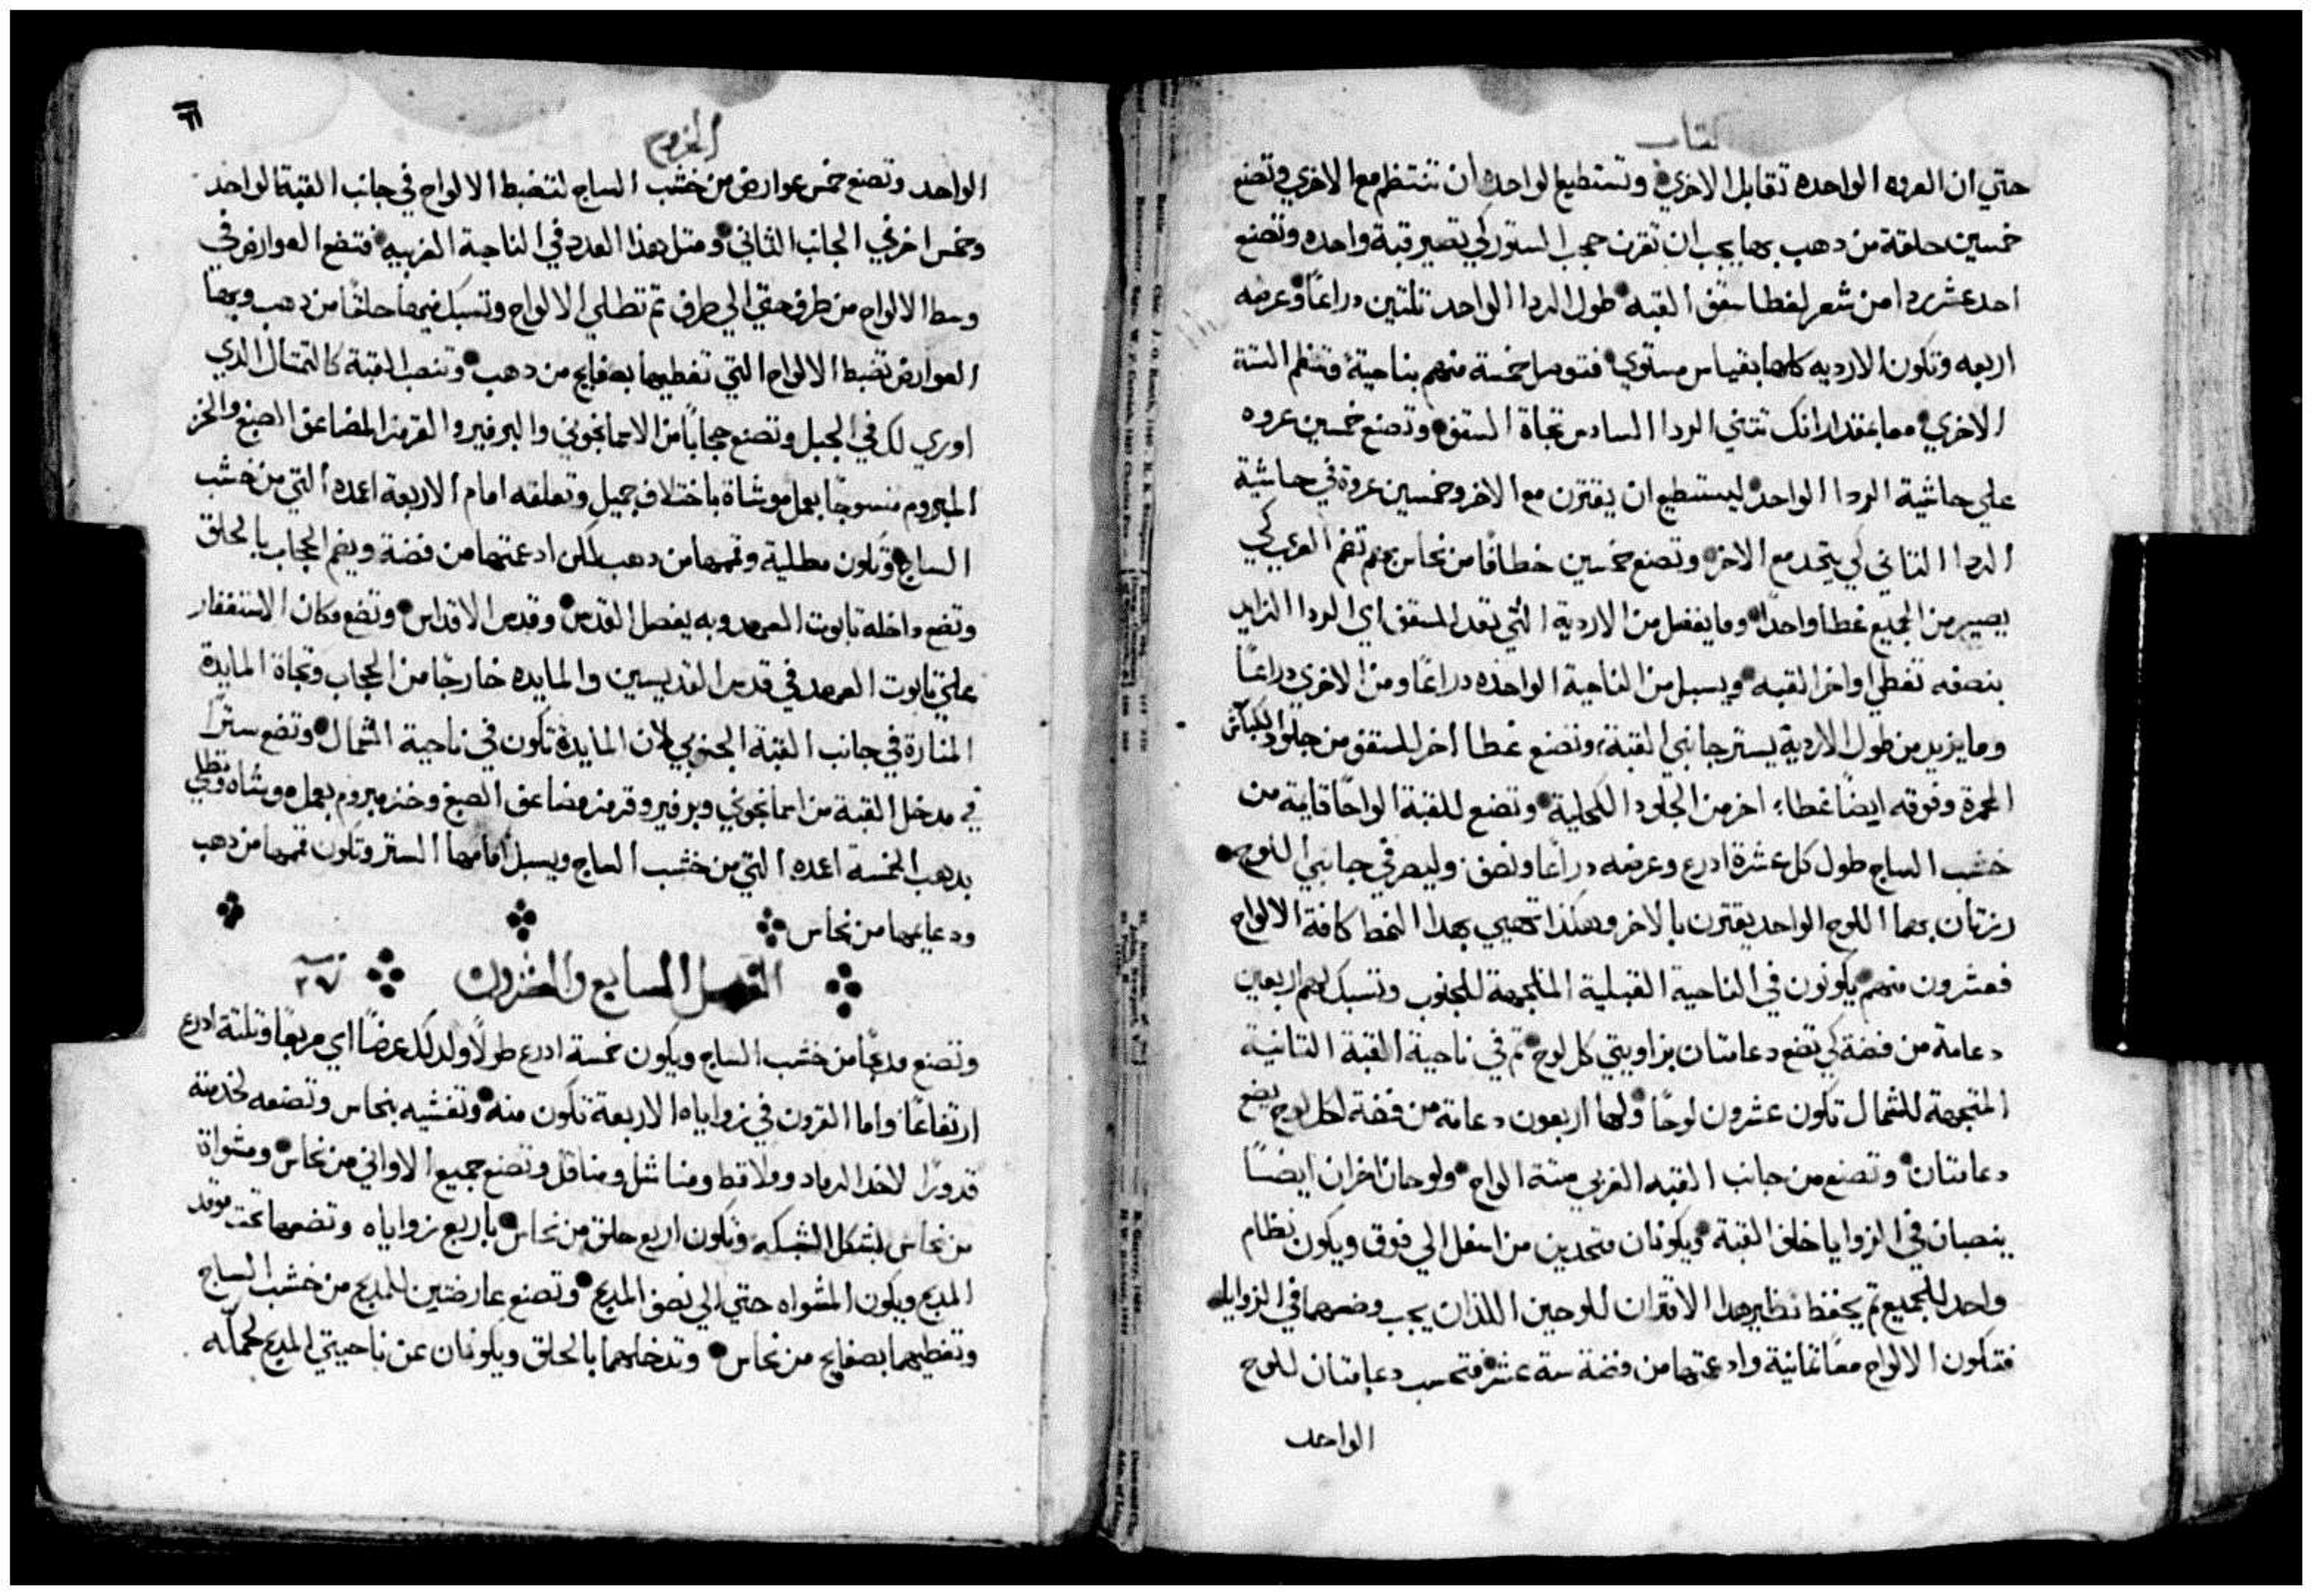 كتاب
حتي ان العروه الواحده تقابل الاخري وتستطيع الواحده ان تنتظم مع الاخري وتصنع
خمسين حلقة من دهب بها يجب ان تقرن حجب الستور كي تصير قبة واحده وتصنع
احد عشر ردا من شعر لغطا سقف القبه طول الردا الواحد تلتين دراعًا وعرضه
اربعه وتكون الارديه كلها بقياس مستوي فتوصل خمسة منهم بناحية وتنظم الستة
الاخري معا بمقدار انك تتني الردا السادس تجاة السقف وتصنع خمسين عروه
علي حاشية الردا الواحد ليستطيع ان يقترن مع الاخر وخمسين عروة في حاشية
الردا التاني كي يتحد مع الاخر وتصنع خمسين خطافًا من نحاس بهم تضم العري كي
يصير من الجميع غطا واحدا وما يفضل من الاردية التي تعد للسقف اي الردا الزايد
بنصفه تغطي اواخر القبه ويسبل من الناحية الواحده دراعًا ومن الاخري دراعًا
وما يزيد من طول الاردية يستر جانبي القبة وتصنع غطا اخر للسقف من جلود الكباش
المحمرة وفوقه ايضًا غطاء اخر من الجلود الكحلية وتصنع للقبة الواحًا قايمة من
خشب الساج طول كل عشرة ادرع وعرضه دراعًا ونصف وليصر في جانبي اللوح
رزتان بهما اللوح الواحد يقترن بالاخر وهكذا تهيي بهدا النمط كافة الالواح
فعشرون منهم يكونون في الناحية القبلية المتجهة للجنوب وتسبك لهم اربعين
دعامة من فضة كي تضع دعامتان بزاويتي كل لوح تم في ناحية القبة التانية
المتجهة للشمال تكون عشرون لوحًا ولها اربعون دعامة من فضة لكل لوح يضع
دعامتان وتصنع من جانب القبه الغربي ستة الواح ولوحان اخران ايضًا
ينصبان في الزوايا خلف القبة ويكونان متحدين من اسفل الي فوق ويكون نظام
واحد للجميع تم يحفظ نظير هدا الاقتران للوحين اللذان يجب وضعهما في الزوايا
فتكون الالواح معًا تمانية وادعمتها من فضة ستة عشر فتحسب دعامتان للوح
الواحد
الخروج
٦٦
الواحد وتصنع خمس عوارض من خشب الساج لتضبط الالواح في جانب القبة الواحد
وخمس اخر في الجانب التاني ومتل هذا العدد في الناحية الغربيه فتضع العوارض في
وسط الالواح من طرف حتي الي طرف تم تطلي الالواح وتسبك فيها حلقًا من دهب وبها
العوارض تضبط الالواح التي تغطيها بصفايح من دهب وتنصب القبة كالتمتال الدي
اوري لك في الجبل وتصنع حجابًا من الاسمانجوني والبرفير والقرمز المضاعف الصبغ والخز
المبروم منسوجًا بعمل موشاة باختلاف جميل وتعلقه امام الاربعة اعمده التي من خشب
الساج وتكون مطلية وقممها من دهب لكن ادعمتها من فضة ويضم الحجاب بالحلق
وتضع داخله تابوت العهد وبه يفصل القدس وقدس الاقداس وتضع مكان الاستغفار
علي تابوت العهد في قدس القديسين والمايده خارجًا من الحجاب وتجاة المايدة
المنارة في جانب القبة الجنوبي لان المايدة تكون في ناحية الشمال وتضع سترًا
في مدخل القبة من اسمانجوني وبرفير وقرمز مضاعف الصبغ وخز مبروم بعمل موشاه وتطلي
بدهب الخمسة اعمده التي من خشب الساج ويسبل امامها الستر وتكون قممها من دهب
ودعايمها من نحاس
الفصل السابع والعشرون ٢٧
وتصنع مدبحًا من خشب الساج ويكون خمسة ادرع طولًا ولدلك عرضًا اي مربعًا وتلتة ادرع
ارتفاعًا واما القرون في زواياه الاربعة تكون منه وتغشيه بنحاس وتصنعه لخدمته
قدورًا لاخد الرماد وملاقط ومناشل ومناقل وتصنع جميع الاواني من نحاس ومشواة
من نحاس بشكل الشبكه وتكون اربع حلق من نحاس باربع زواياه وتضعها تحت موقد
المدبح ويكون المشواه حتي الي نصف المدبح وتصنع عارضتين للمدبح من خشب الساج
وتغطيهما بصفايح من نحاس وتدخلهما بالحلق ويكونان عن ناحيتي المدبح لحمله